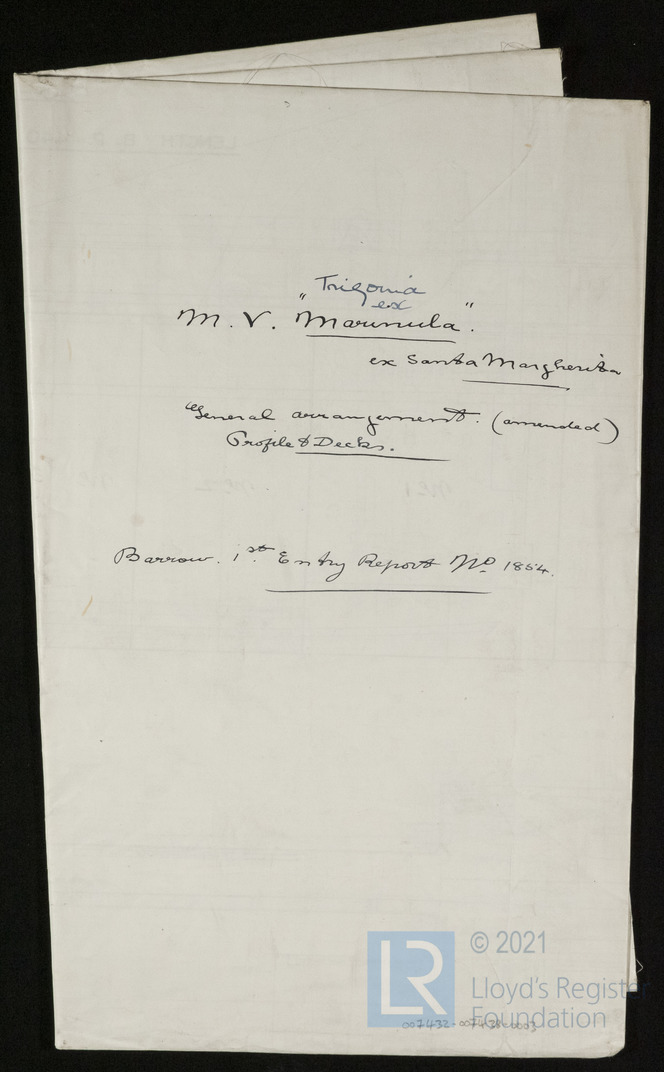 Trigonia
ex
M. V. "Marinula".
ex Santa Margherita
General arrangement. (amended)
Profile & Decks.
Barrow. 1st. Entry Report No 1854.
LR
© 2021
Lloyd's Register
Foundation